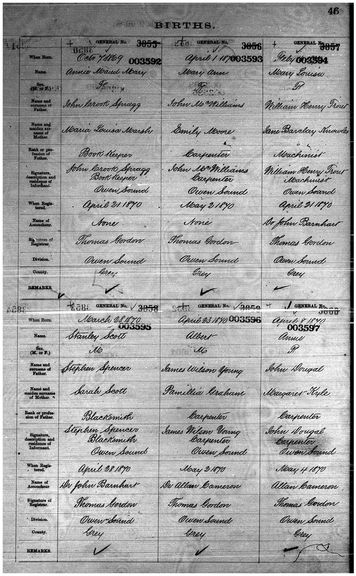 46
BIRTHS.
GENERAL No. 3055
GENERAL No. 3056
GENERAL No. 3057
003592
003593
003594
When Born.
Octr 7 1869
April 1 1870
Name.
Annie Maud Mary
Mary Ann
Mary Louisa
Sex. (M. or F.)
F
F
F
Name and surname of Father.
John Crook Spragg
John McWilliams
William Henry Trout
Name and maiden surname of Mother.
Maria Louisa Marsh
Emily Moore
Jane Barclay Knowles
Rank or profession of Father.
Book Keeper
Carpenter
Machinist
Signature, description and residence of Informant.
John Crook Spragg
Book Keeper
Owen Sound
John McWilliams
Carpenter
Owen Sound
William Henry Trout
Machinist
Owen Sound
When Registered.
April 21 1870
May 2 1870
April 21 1870
Name of Accoucheur.
None
None
Dr John Barnhart
Signature of Registrar.
Thomas Gordon
Thomas Gordon
Thomas Gordon
Division.
Owen Sound
Owen Sound
Owen Sound
County.
Grey
Grey
Grey
REMARKS
GENERAL No. 3058
GENERAL No. 3059
GENERAL No.
003595
003596
003597
When Born.
March 28 1870
April 23 1870
April 8 1870
Name.
Stanley Scott
Albert
Annie
Sex. (M. or F.)
M
M
F
Name and surname of Father.
Stephen Spencer
James Wilson Young
John Dougal
Name and maiden surname of Mother.
Sarah Scott
Pamillia Graham
Margaret Kyle
Rank or profession of Father.
Blacksmith
Carpenter
Carpenter
Signature, description and residence of Informant.
Stephen Spencer
Blacksmith
Owen Sound
James Wilson Young
Carpenter
Owen Sound
John Dougal
Carpenter
Owen Sound
When Registered.
April 28 1870
May 2 1870
May 4 1870
Name of Accoucheur.
Dr John Barnhart
Dr Allan Cameron
Allan Cameron
Signature of Registrar.
Thomas Gordon
Thomas Gordon
Thomas Gordon
Division.
Owen Sound
Owen Sound
Owen Sound
County.
Grey
Grey
Grey
REMARKS.